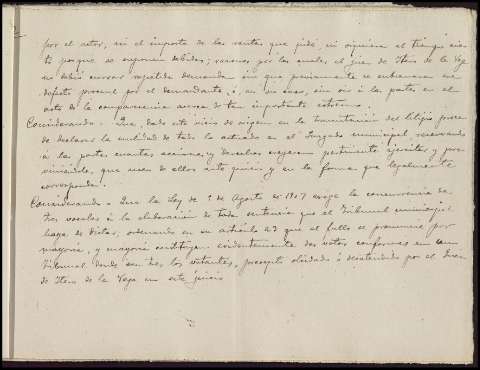 por el actor, ni el importe de las rentas que pide, ni siquiera el tiempo cier-
to porque se suponen debidas; razones por las cuales el juez de Itero de la Vega
no debió cursar repetida demanda sin que previamente se subsanara ese
defecto procesal por el demandante, ó, en su caso, sin oir á las partes en el
acto de la comparecencia acerca de tan importante extremo.
Considerando - Que dado este vicio de origen en la tramitación del litigio procede
declarar la nulidad de todo lo actuado en el Juzgado municipal, reservando
á las partes cuantas acciones y derechos creyeren pertinente ejercitar, y pre-
viniéndoles, que usen de ellos ante quien y en la forma que legalmente
corresponda.
Considerando - Que la Ley de 5 de Agosto de 1907 exige la concurrencia de
tres vocales á la elaboración de toda sentencia que el Tribunal municipal
haya de dictar, ordenando en su artículo 23 que el fallo se pronuncie por
mayoría, y mayoría constituyen evidentemente dos votos conformes en un
Tribunal donde son tres los votantes, precepto olvidado ó desatendido por el Juez
de Itero de la Vega en este juicio